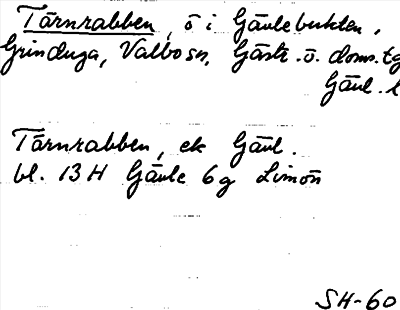 Tärnrabben, ö i Gävlebukten,
Grinduga, Valbo sn, Gästr. ö. doms.
Gävl.
Tärnrabben, ek Gävl.
bl. 13 H Gävle 6g Limön
SH-60